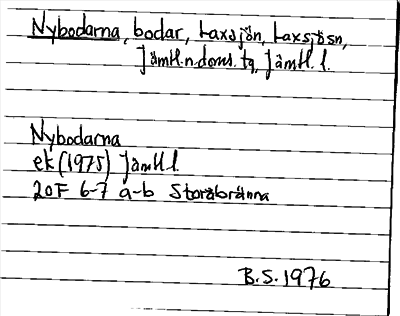 Nybodarna, bodar, Laxsjön, Laxsjösn,
Jämtl.n.doms.tg, Jämtl.l.
Nybodarna
ek (1975) Jämtl.l.
20F 6-7 a-b Storåbränna
B.S. 1976